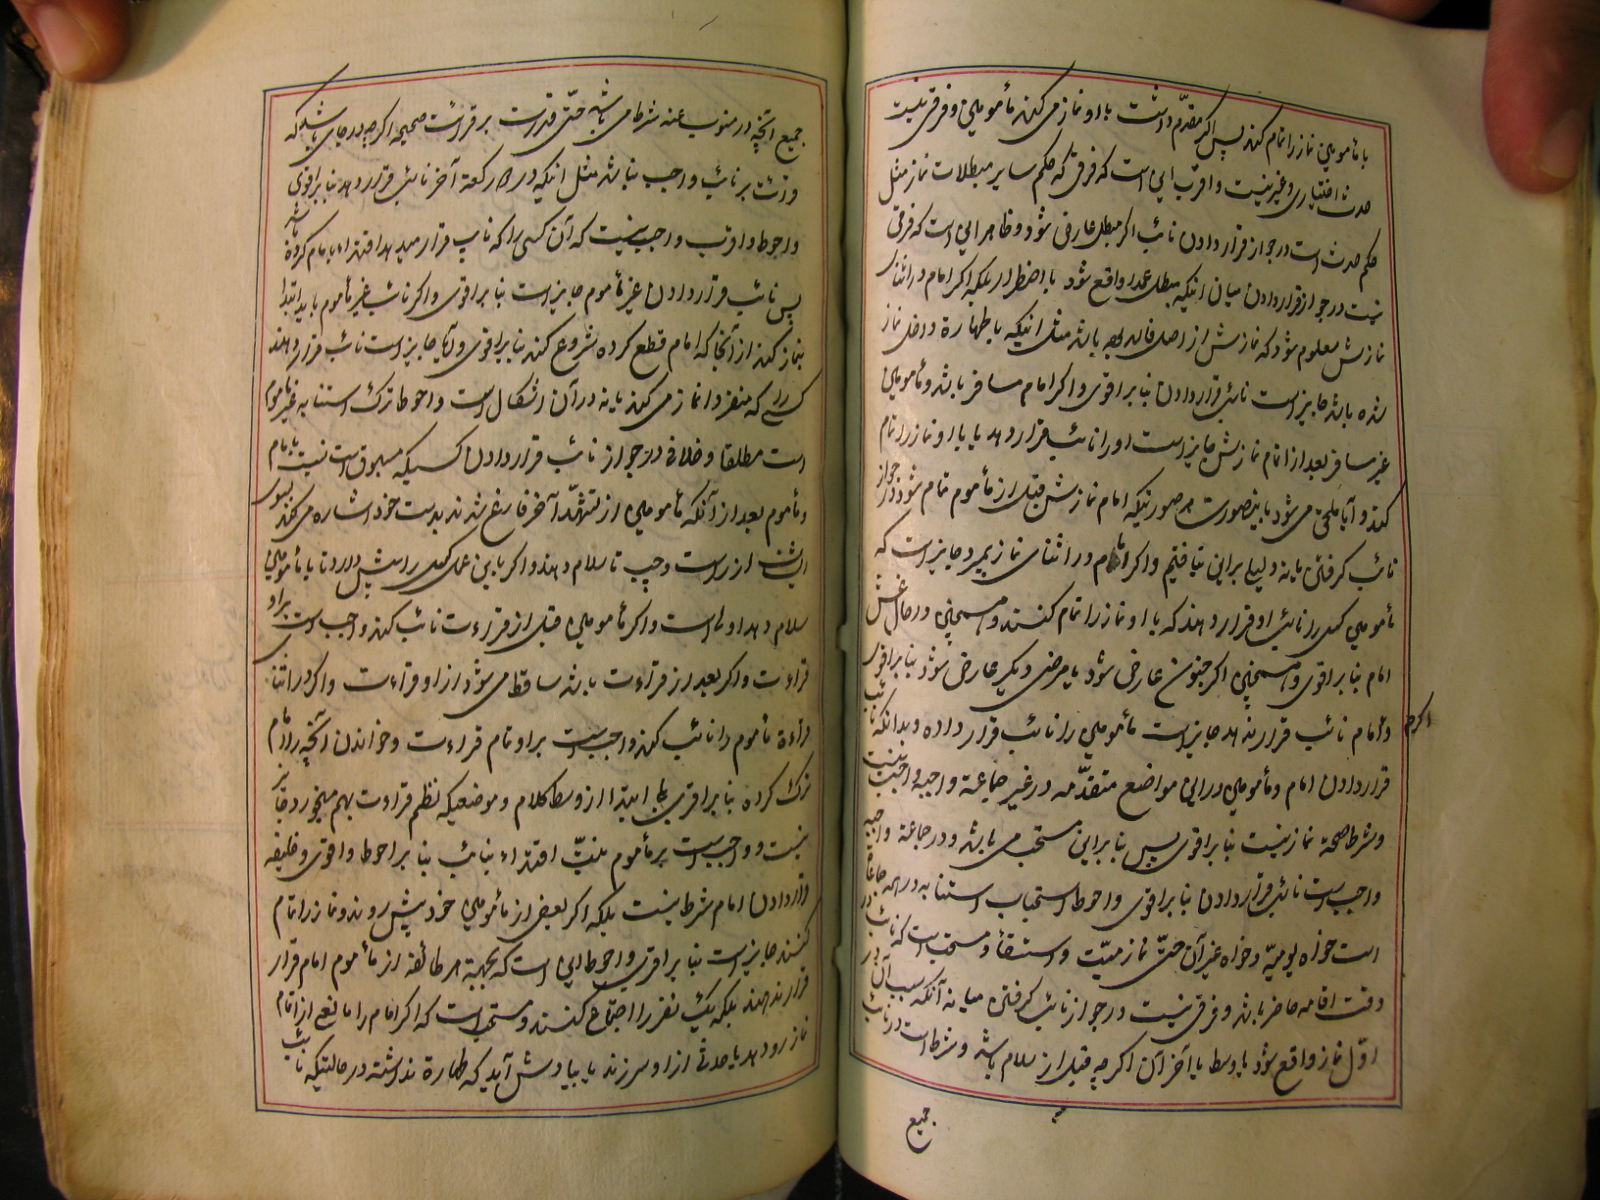 با مأمومین نماز را تمام کند پس اگر مقدّم داشت با او نماز می کنند مأمومین و فرقی نیست
حدث اختیاری و غیر نیست و اقرب این است که فرقی که حکم سایر مبطلات نماز مثل
حکم حدث است در جواز قرار دادن نائب اگر مبطل عارض شود و ظاهر این است که فرقی
نیست در جواز قرار دادن میان اینکه مبطل عمدا واقع شود یا اضطرار بلکه اگر امام در اثنای
نمازش معلوم شود که نمازش از اصل فاسد بوده باشد مثل اینکه با طهارة داخل نماز
شده باشد جایز است نائب قرار دادن بنا بر اقوی و اگر امام مسافر باشد و مأمومین
غیر مسافر بعد از اتمام نمازش جایز است او را نائب قرار دهد یا با او نماز را تمام
کند و آیا ملحق می شود باینصورت هر صورتیکه امام نمازش قبل از مأموم تمام شود در جواز
نائب گرفتن یا نه دلیلی بر این نیافتیم و اگر امام در اثنای نماز بمیرد جایز است که
مأمومین کسی را نائب او قرار دهند که با او نماز را تمام کنند و همچنین در حال غش
امام بنا بر اقوی و همچنین اگر جنون عارض شود یا مرض دیگر عارض شود بنا بر اقوی
و امام نائب قرار ندهد جایز است مأمومین را نائب قرار داده و بدانکه نائب
قرار دادن امام و مأمومین در این مواضع متقدّمه در غیر جماعة واجبه واجب نیست
و شرط صحة نماز نیست بنا بر اقوی پس بنا بر این مستحب می باشد و در جماعة واجبه
واجب است نائب قرار دادن بنا بر اقوی و احوط استحباب استنابه در همه جماعات
است خواه یومیّه و خواه غیر آن حتّی نماز میّت و استسقاء و مستحب است که نائب در
وقت اقامه حاضر باشد و فرقی نیست در جواز نائب گرفتن میانه آنکه سبب آن در
اوّل نماز واقع شود یا وسط یا آخر آن اگر چه قبل از سلام باشد و شرط است در نائب
جمیع
جمیع آنچه در منوب عنه شرط می باشد حتّی قدرت بر قرائت صحیحه اگر چه در جای باشد که
قرائت بر نائب واجب نباشد مثل اینکه در رکعة آخر نائب قرار دهد بنا بر اقوی
و احوط و اقرب واجب نیست که آن کسی را که نائب قرار میدهد اقتداء بامام کرده باشد
پس نائب قرار دادن غیر مأموم جایز است بنا بر اقوی و اگر نائب غیر مأموم باید ابتدا
بنماز کند از آنجا که امام قطع کرده شروع کند بنا بر اقوی و آیا جایز است نائب قرار دهند
کسی را که منفردا نماز می کند یا نه در آن اشکال است و احوط ترک استنابه غیر مأموم
است مطلقا و خلافی در جواز نائب قرار دادن کسیکه مسبوق است نیست بامام
و مأموم بعد از آنکه مأمومین از تشهّد آخر فارغ شدند بدست خود اشاره می کند بسوی
ایشان از راست و چپ تا سلام دهند و اگر باین عمل کسی را پیش دارد تا با مأمومین
سلام دهد اولی است و اگر مأمومین قبل از قراءت نائب کند واجب است بر او
قراءت و اگر بعد از قراءت باشد ساقط می شود از او قراءت و اگر در اثنا
قراءة مأموم را نائب کند واجب نیست بر او تمام قراءت و خواندن آنچه را امام
ترک کرده بنا بر اقوی بل ابتدا از وسط کلام و موضعیکه نظم قراءت بهم میخورد جایز
نیست و واجب است بر مأموم نیّت اقتداء بنائب بنا بر احوط و اقوی و خلیفه
قرار دادن امام شرط نیست بلکه اگر بعضی از مأمومین خود پیش روند و نماز را تمام
کنند جایز است بنا بر اقوی و احوط این است که بجهة هر طائفه از مأموم امام قرار
قرار ندهند بلکه یک نفر را اجتماع کنند و مستحب است که اگر امام را مانع از اتمام
نماز رو دهد یا حدثی از او سرزند یا بیادش آید که طهارة نداشته در حالتیکه نائب